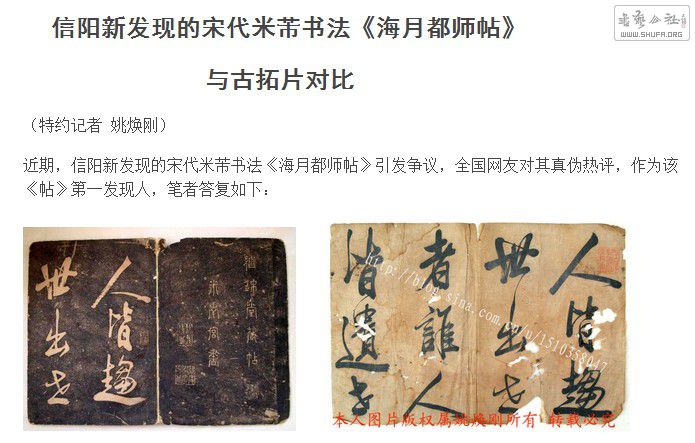 書藝公社
WWW.SHUFA.ORG
信阳新发现的宋代米芾书法《海月都师帖》
与古拓片对比
（特约记者 姚焕刚）
近期，信阳新发现的宋代米芾书法《海月都师帖》引发争议，全国网友对其真伪热评，作为该
《帖》第一发现人，笔者答复如下：
人皆趨
世出世
人皆趨
世出世
者誰人
皆遺世
http://blog.sina.com.cn/u/1510358047
本人图片版权属姚焕刚所有 转载必究